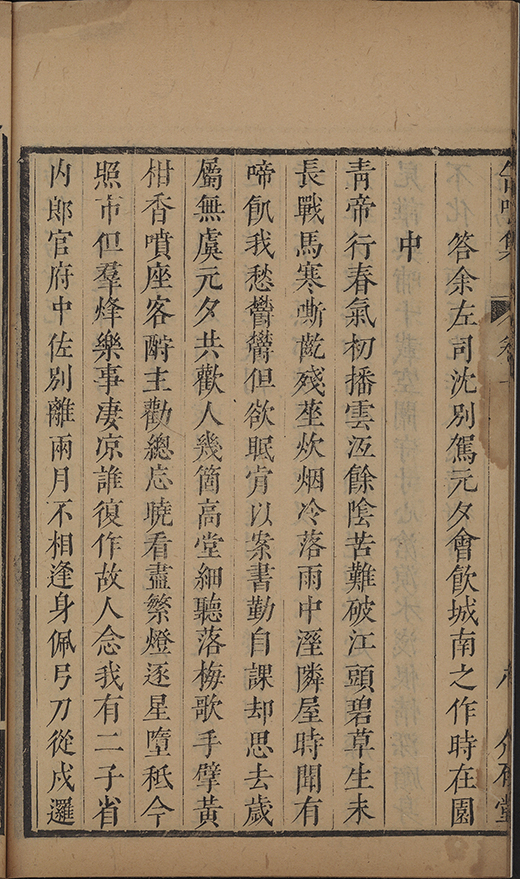 答余左司沈别駕元夕會飲城南之作時在圍
中
靑帝行春氣初播雲沍餘陰苦難破江頭碧草生未
長戰馬寒嘶齕殘莝炊烟冷落雨中溼隣屋時聞有
啼飢我愁鬱鬱但欲眠肯以案書勤自課却思去歲
屬無虞元夕共歡人幾箇高堂細聽落梅歌手擘黃
柑香噴座客酧主勸總忘曉看盡繁燈逐星墮秪今
照市但羣烽樂事凄凉誰復作故人念我有二子省
内郎官府中佐別離兩月不相逢身佩弓刀從戍邏